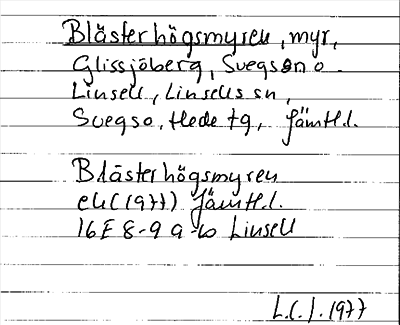 Blästerhögsmyren, myr,
Glissjöberg, Svegs sn o
Linsell, Linsells sn,
Svegs o. Hede tg, Jämtl.l.
Blästerhögsmyren
ek (1977) Jämtl.l.
16E 8-9 a-b Linsell
L.C.J. 1977